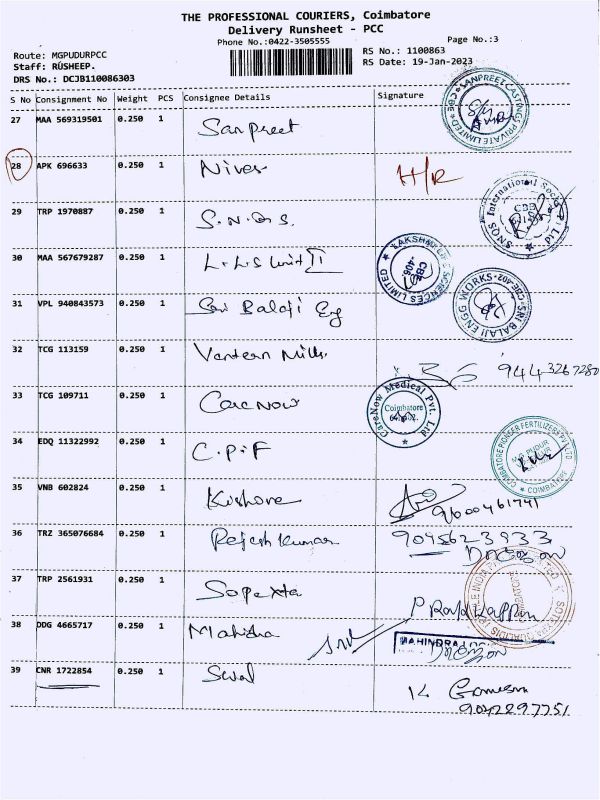 THE PROFESSIONAL COURIERS, Coimbatore
Delivery Runsheet - PCC
Phone No.:0422-3505555 Page No.:3
Route: MGPUDURPCC RS No.: 1100863
Staff: RUSHEEP. RS Date: 19-Jan-2023
DRS No.: DCJB110086303
S No Consignment No Weight PCS Consignee Details Signature
27 MAA 569319501 0.250 1 Sanpreet
SANPREET CASTINGS PRIVATE LIMITED * CBE
28 APK 696633 0.250 1 Nives H/R
29 TRP 1970887 0.250 1 S.N.Q.S.
SNQS International Socks Pvt Ltd
30 MAA 567679287 0.250 1 L.L.S Unit II
LAKSHMI LIFE SCIENCES LIMITED
31 VPL 940843573 0.250 1 Sri Balaji Eng
SRI BALAJI ENGG WORKS
32 TCG 113159 0.250 1 Mills 9443267280
33 TCG 109711 0.250 1 CareNow
CareNow Medical Pvt. Ltd
Coimbatore
34 EDQ 11322992 0.250 1 C.P.F
COIMBATORE PIONEER FERTILIZERS PVT LTD
COIMBATORE
35 VNB 602824 0.250 1 Kishore 9600461741
36 TRZ 365076684 0.250 1 Rejesh Kumar 9045623933
37 TRP 2561931 0.250 1
38 DDG 4665717 0.250 1 Mahisha
MAHINDRA
39 CNR 1722854 0.250 1 K Ganesan
9042297751